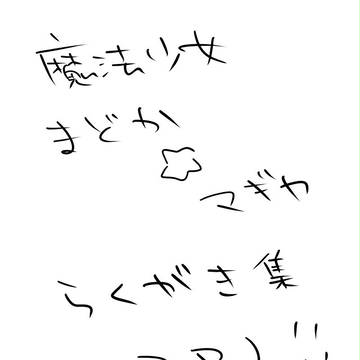 魔法少女
まどか
☆
マギカ
らくがき集